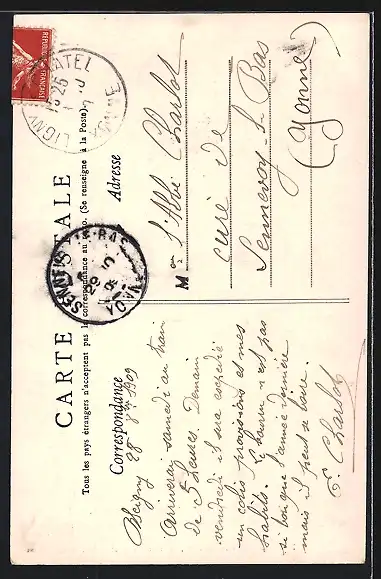 CARTE POSTALE
Tous les pays étrangers n'acceptent pas la correspondance au verso. (Se renseigner à la Poste)
Correspondance
Adresse
28 8bre 1909
Arriverai samedi au train
de 5 heures. Demain
vendredi il sera expédié
un colis provisions et mes
habits. Le bourin n'est pas
si bon que l'année dernière
mais il peut se boire.
E. Charlot
M on
l'Abbé Charlot
curé de
Sennevoy le Bas
(Yonne)
REPUBLIQUE FRANÇAISE
YONNE